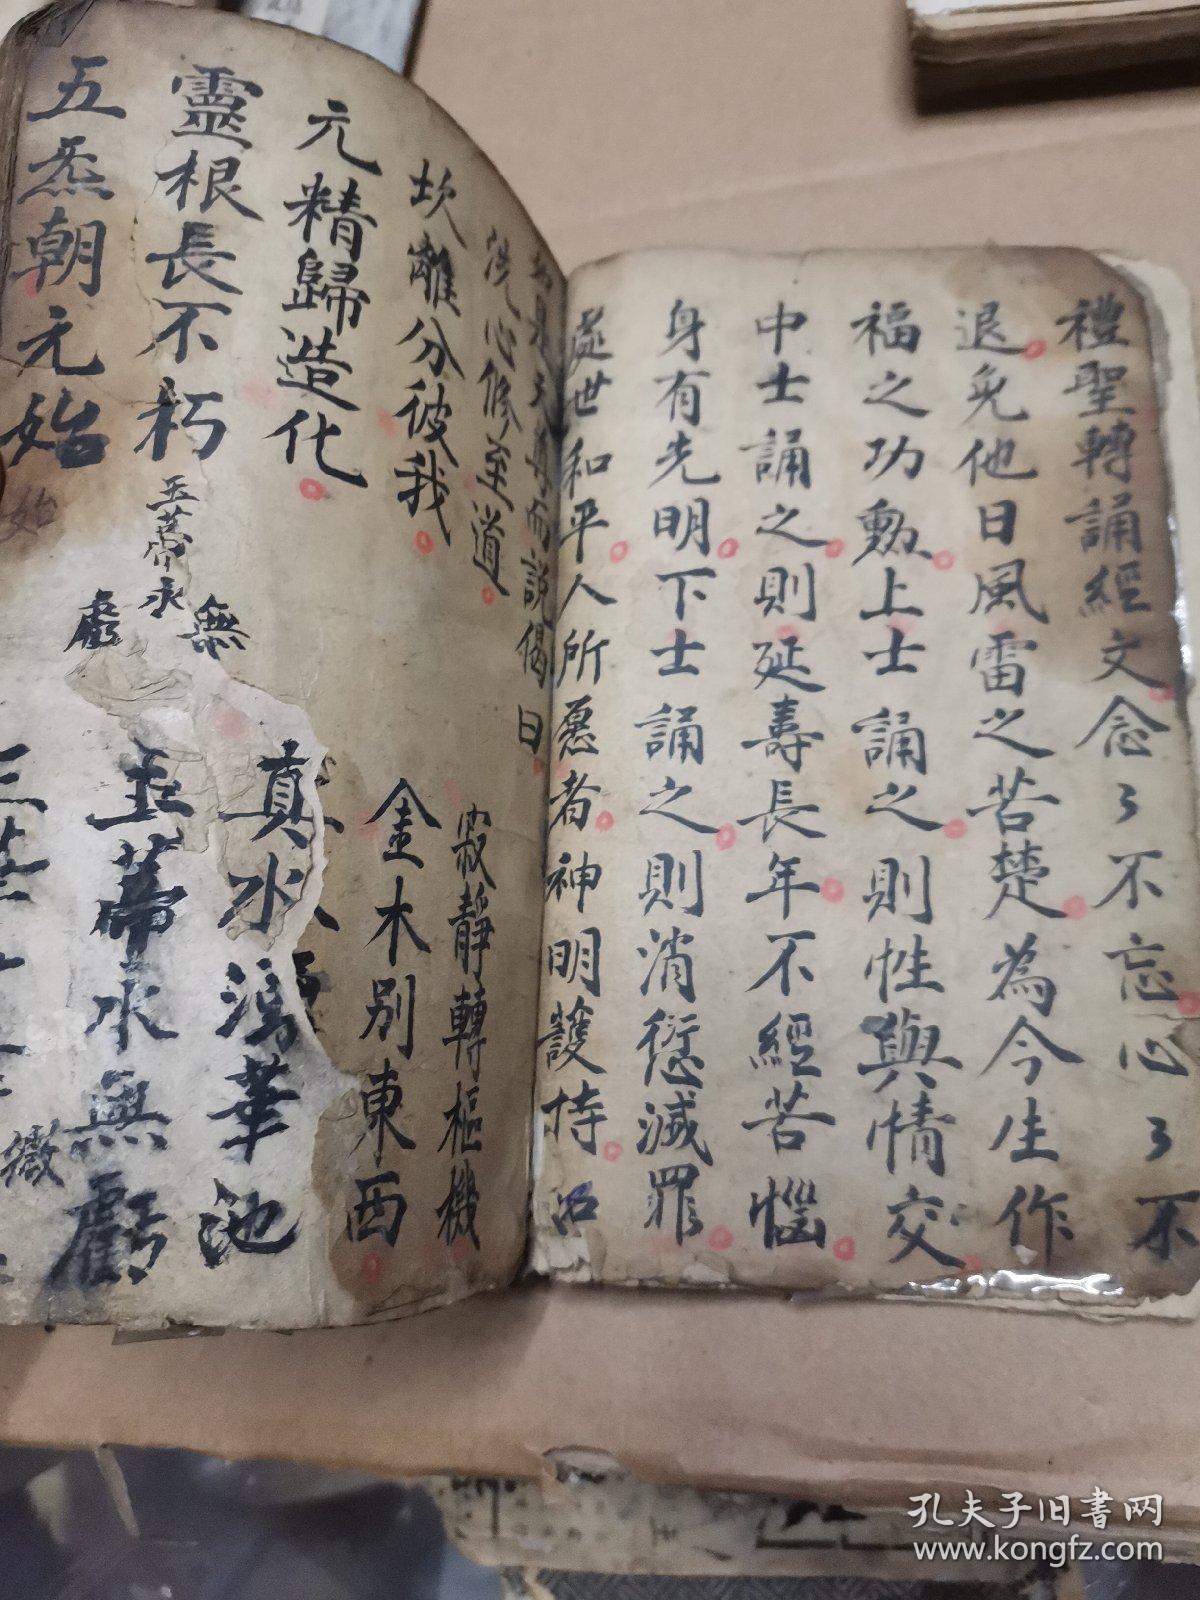 禮聖轉誦經文念々不忘心々不
退免他日風雷之苦楚為今生作
福之功勳上士誦之則性與情交
中士誦之則延壽長年不經苦惱
身有先明下士誦之則消愆滅罪
處世和平人所愿者神明護持
天尊而說偈曰
洗心修至道 寂靜轉樞機
坎離分彼我 金木別東西
元精歸造化 真水瀉華池
靈根長不朽 玉蒂水無虧
玉蒂永
無
虧
五炁朝元始
始
孔夫子旧书网
www.kongfz.com